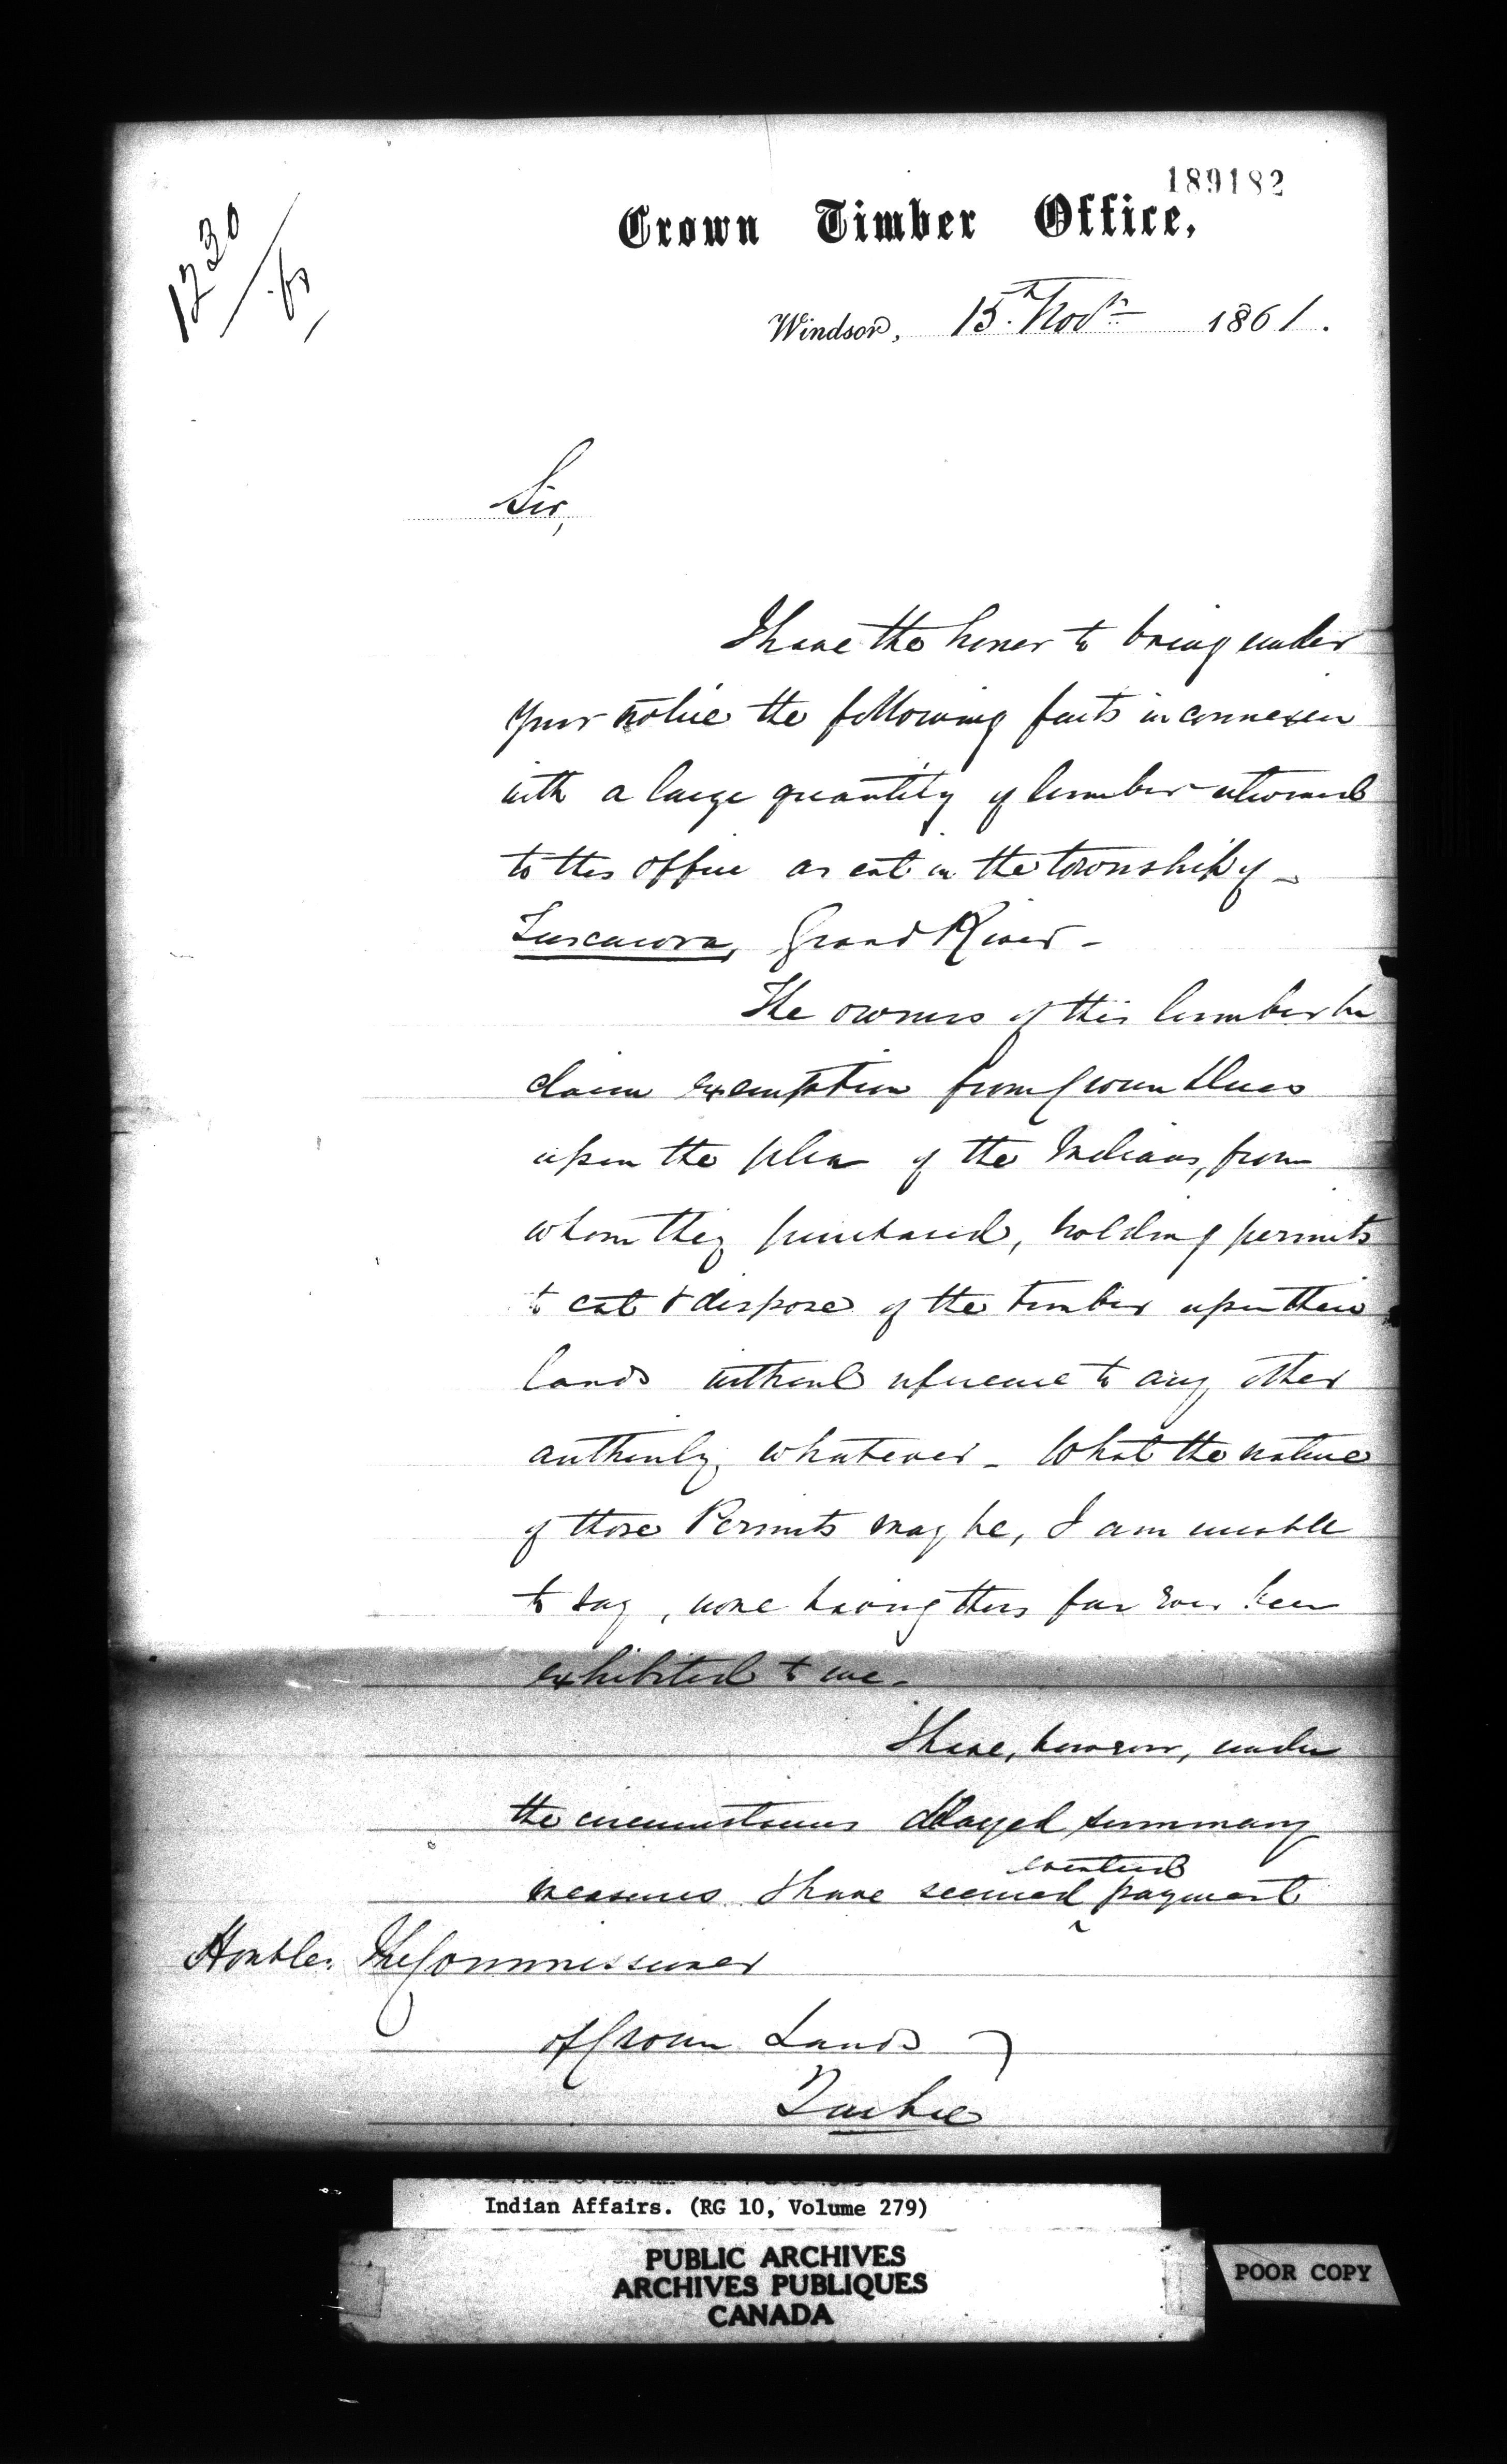 189182
1230/61
Crown Timber Office,
Windsor, 15th Novr 1861.
Sir,
I have the honor to bring under
your notice the following facts in connexion
with a large quantity of lumber returned
to this office as cut in the township of
Tuscarora, Grand River -
The owners of this lumber
claim exemption from Crown Dues
upon the plea of the Indians, from
whom they purchased, holding permits
to cut & dispose of the timber upon their
lands without reference to any other
authority whatever - What the nature
of those Permits may be, I am unable
to say, none having thus far ever been
exhibited to me.
I have, however, under
the circumstances delayed summary
eventual
measures. I have secured payment
Honble. The Commissioner
of Crown Lands
Quebec
Indian Affairs. (RG 10, Volume 279)
PUBLIC ARCHIVES
ARCHIVES PUBLIQUES
CANADA
POOR COPY